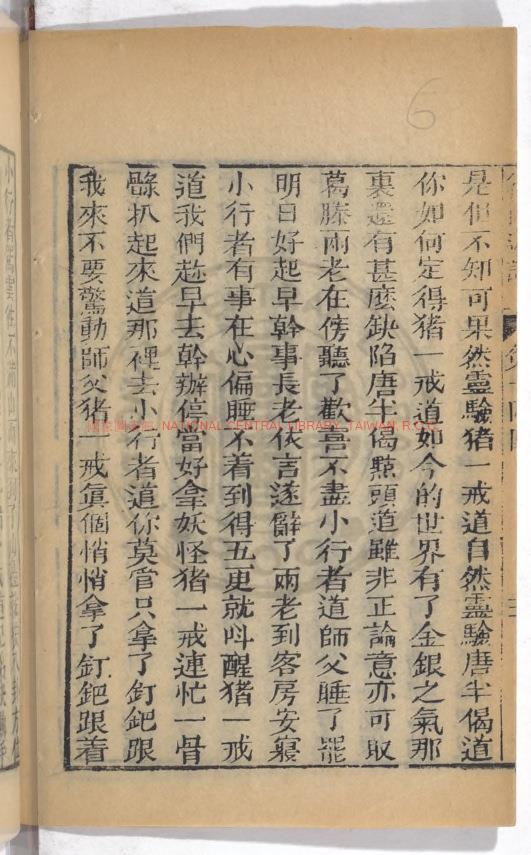 6
是但不知可果然靈驗猪一戒道自然靈驗唐半偈道
你如何定得猪一戒道如今的世界有了金銀之氣那
裏還有甚麼缺陷唐半偈㸃頭道雖非正論意亦可取
葛滕兩老在傍聽了歡喜不盡小行者道師父睡了罷
明日好起早幹事長老依言遂辭了兩老到客房安寢
小行者有事在心偏睡不着到得五更就呌醒猪一戒
道我們趂早去幹辦停當好拿妖怪猪一戒連忙一骨
碌扒起來道那裡去小行者道你莫管只拿了釘鈀跟
我來不要驚動師父猪一戒真個悄悄拿了釘鈀跟着
NATIONAL CENTRAL LIBRARY, TAIWAN, R.O.C.